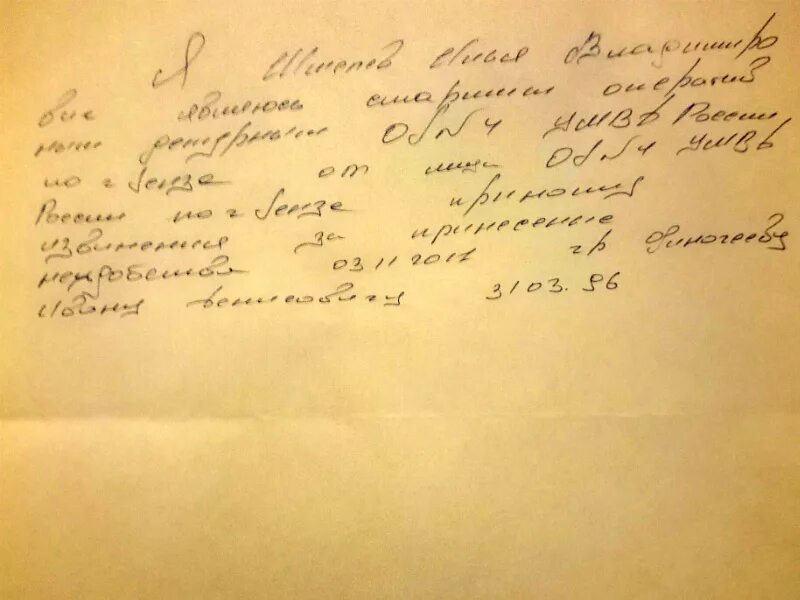 Я Шмелев Илья Владимиро
вич являюсь старшим оператив
ным дежурным ОП№4 УМВД России
по г Пенза от лица ОП№4 УМВД
России по г Пенза приношу
извинения за принесение
неудобства 03 11 2017 гр
Ивану Денисовичу 31 03. 96